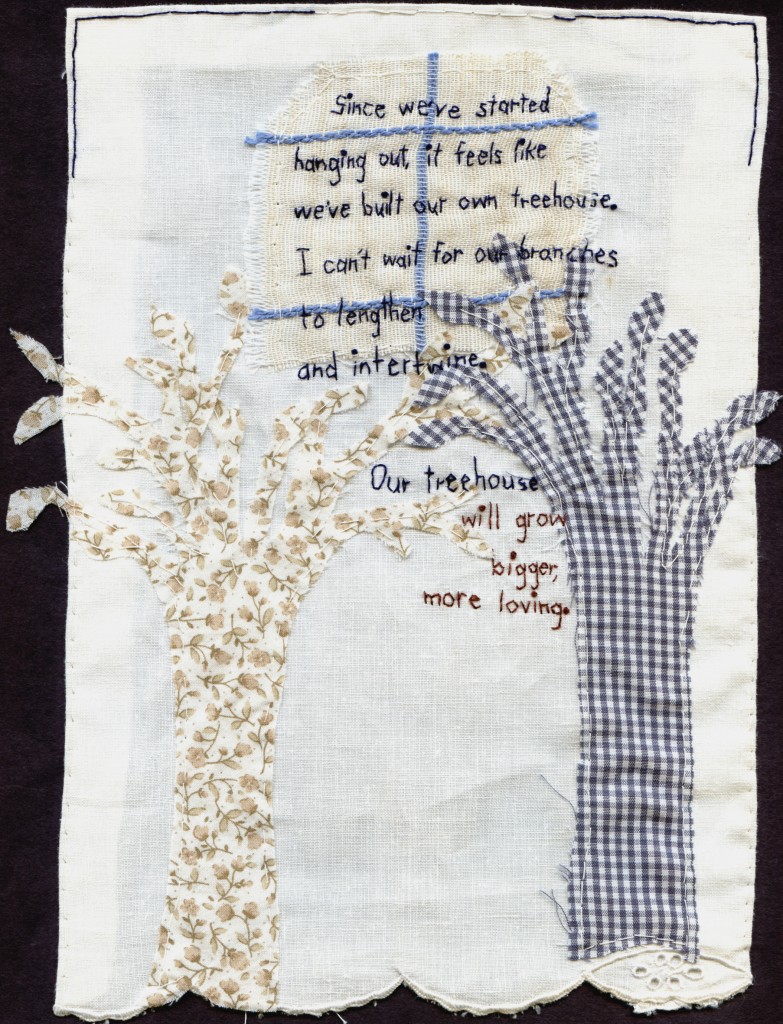 Since we've started
hanging out, it feels like
we've built our own treehouse.
I can't wait for our branches
to lengthen
and intertwine.
Our treehouse
will grow
bigger,
more loving.